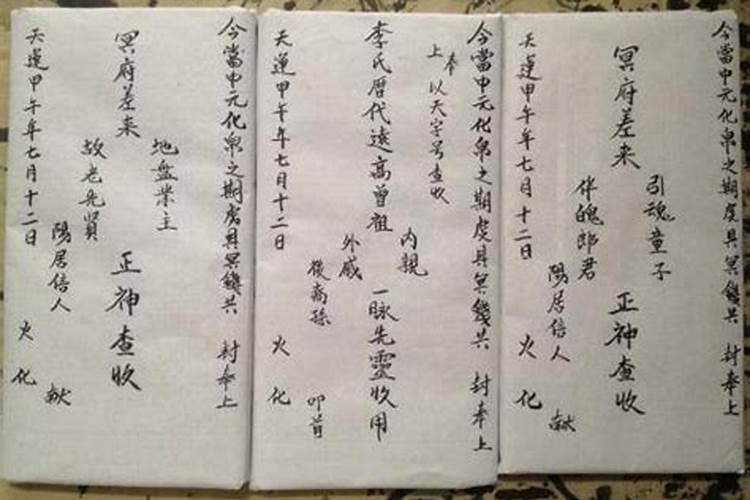 今當中元化帛之期虔具冥錢共 封奉上
引魂童子
冥府差来 正神查收
伴魄郎君
陽居信人 献
天運甲午年七月十二日 火化
今當中元化帛之期虔具冥錢共 封奉上
奉上 以天字号查收
内親
李氏歷代遠高曾祖 一脉先靈收用
外戚
後裔孫 叩首
天運甲午年七月十二日 火化
今當中元化帛之期虔具冥錢共 封奉上
地盤業主
冥府差来 正神查收
故老先賢
陽居信人 献
天運甲午年七月十二日 火化